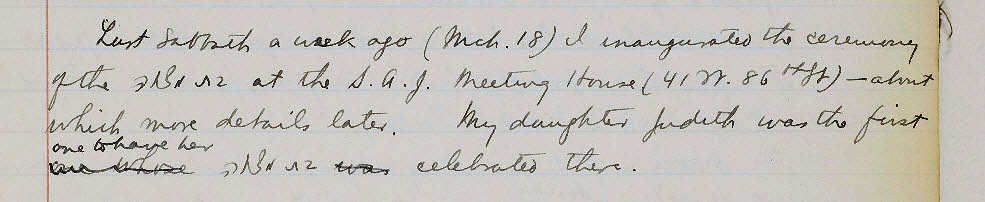 Last Sabbath a week ago (Mch. 18) I inaugurated the ceremony
of the בת מצוה at the S. A. J. Meeting House (41 W. 86th St) – about
which more details later. My daughter Judith was the first
one to have her
one whose בת מצוה was celebrated there.